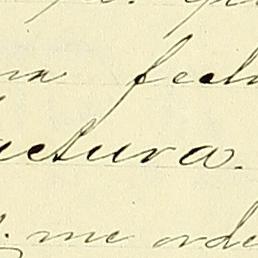 na fech
actura.
me orde